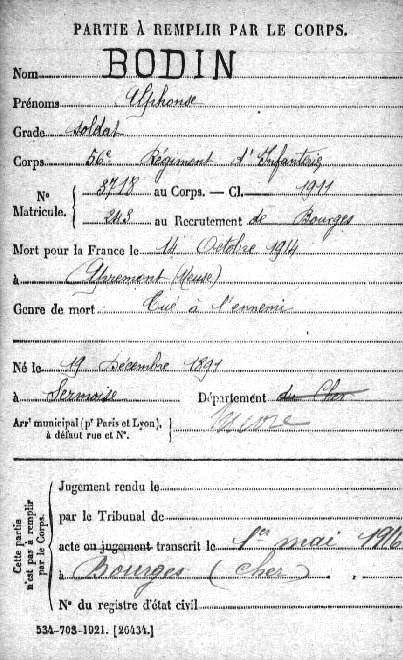 PARTIE À REMPLIR PAR LE CORPS.
Nom BODIN
Prénoms Alphonse
Grade soldat
Corps 56e Régiment d'Infanterie
N° Matricule. 3718 au Corps. — Cl. 1911
243 au Recrutement de Bourges
Mort pour la France le 14 Octobre 1914
à Apremont (Meuse)
Genre de mort Tué à l'ennemi
Né le 19 Décembre 1891
à Sermoise Département du Cher
Arrt municipal (pr Paris et Lyon), à défaut rue et N°. Nièvre
Cette partie n'est pas à remplir par le Corps.
Jugement rendu le
par le Tribunal de
acte ou jugement transcrit le 1er mai 1916
à Bourges (Cher)
N° du registre d'état civil
534-708-1921. [26434.]